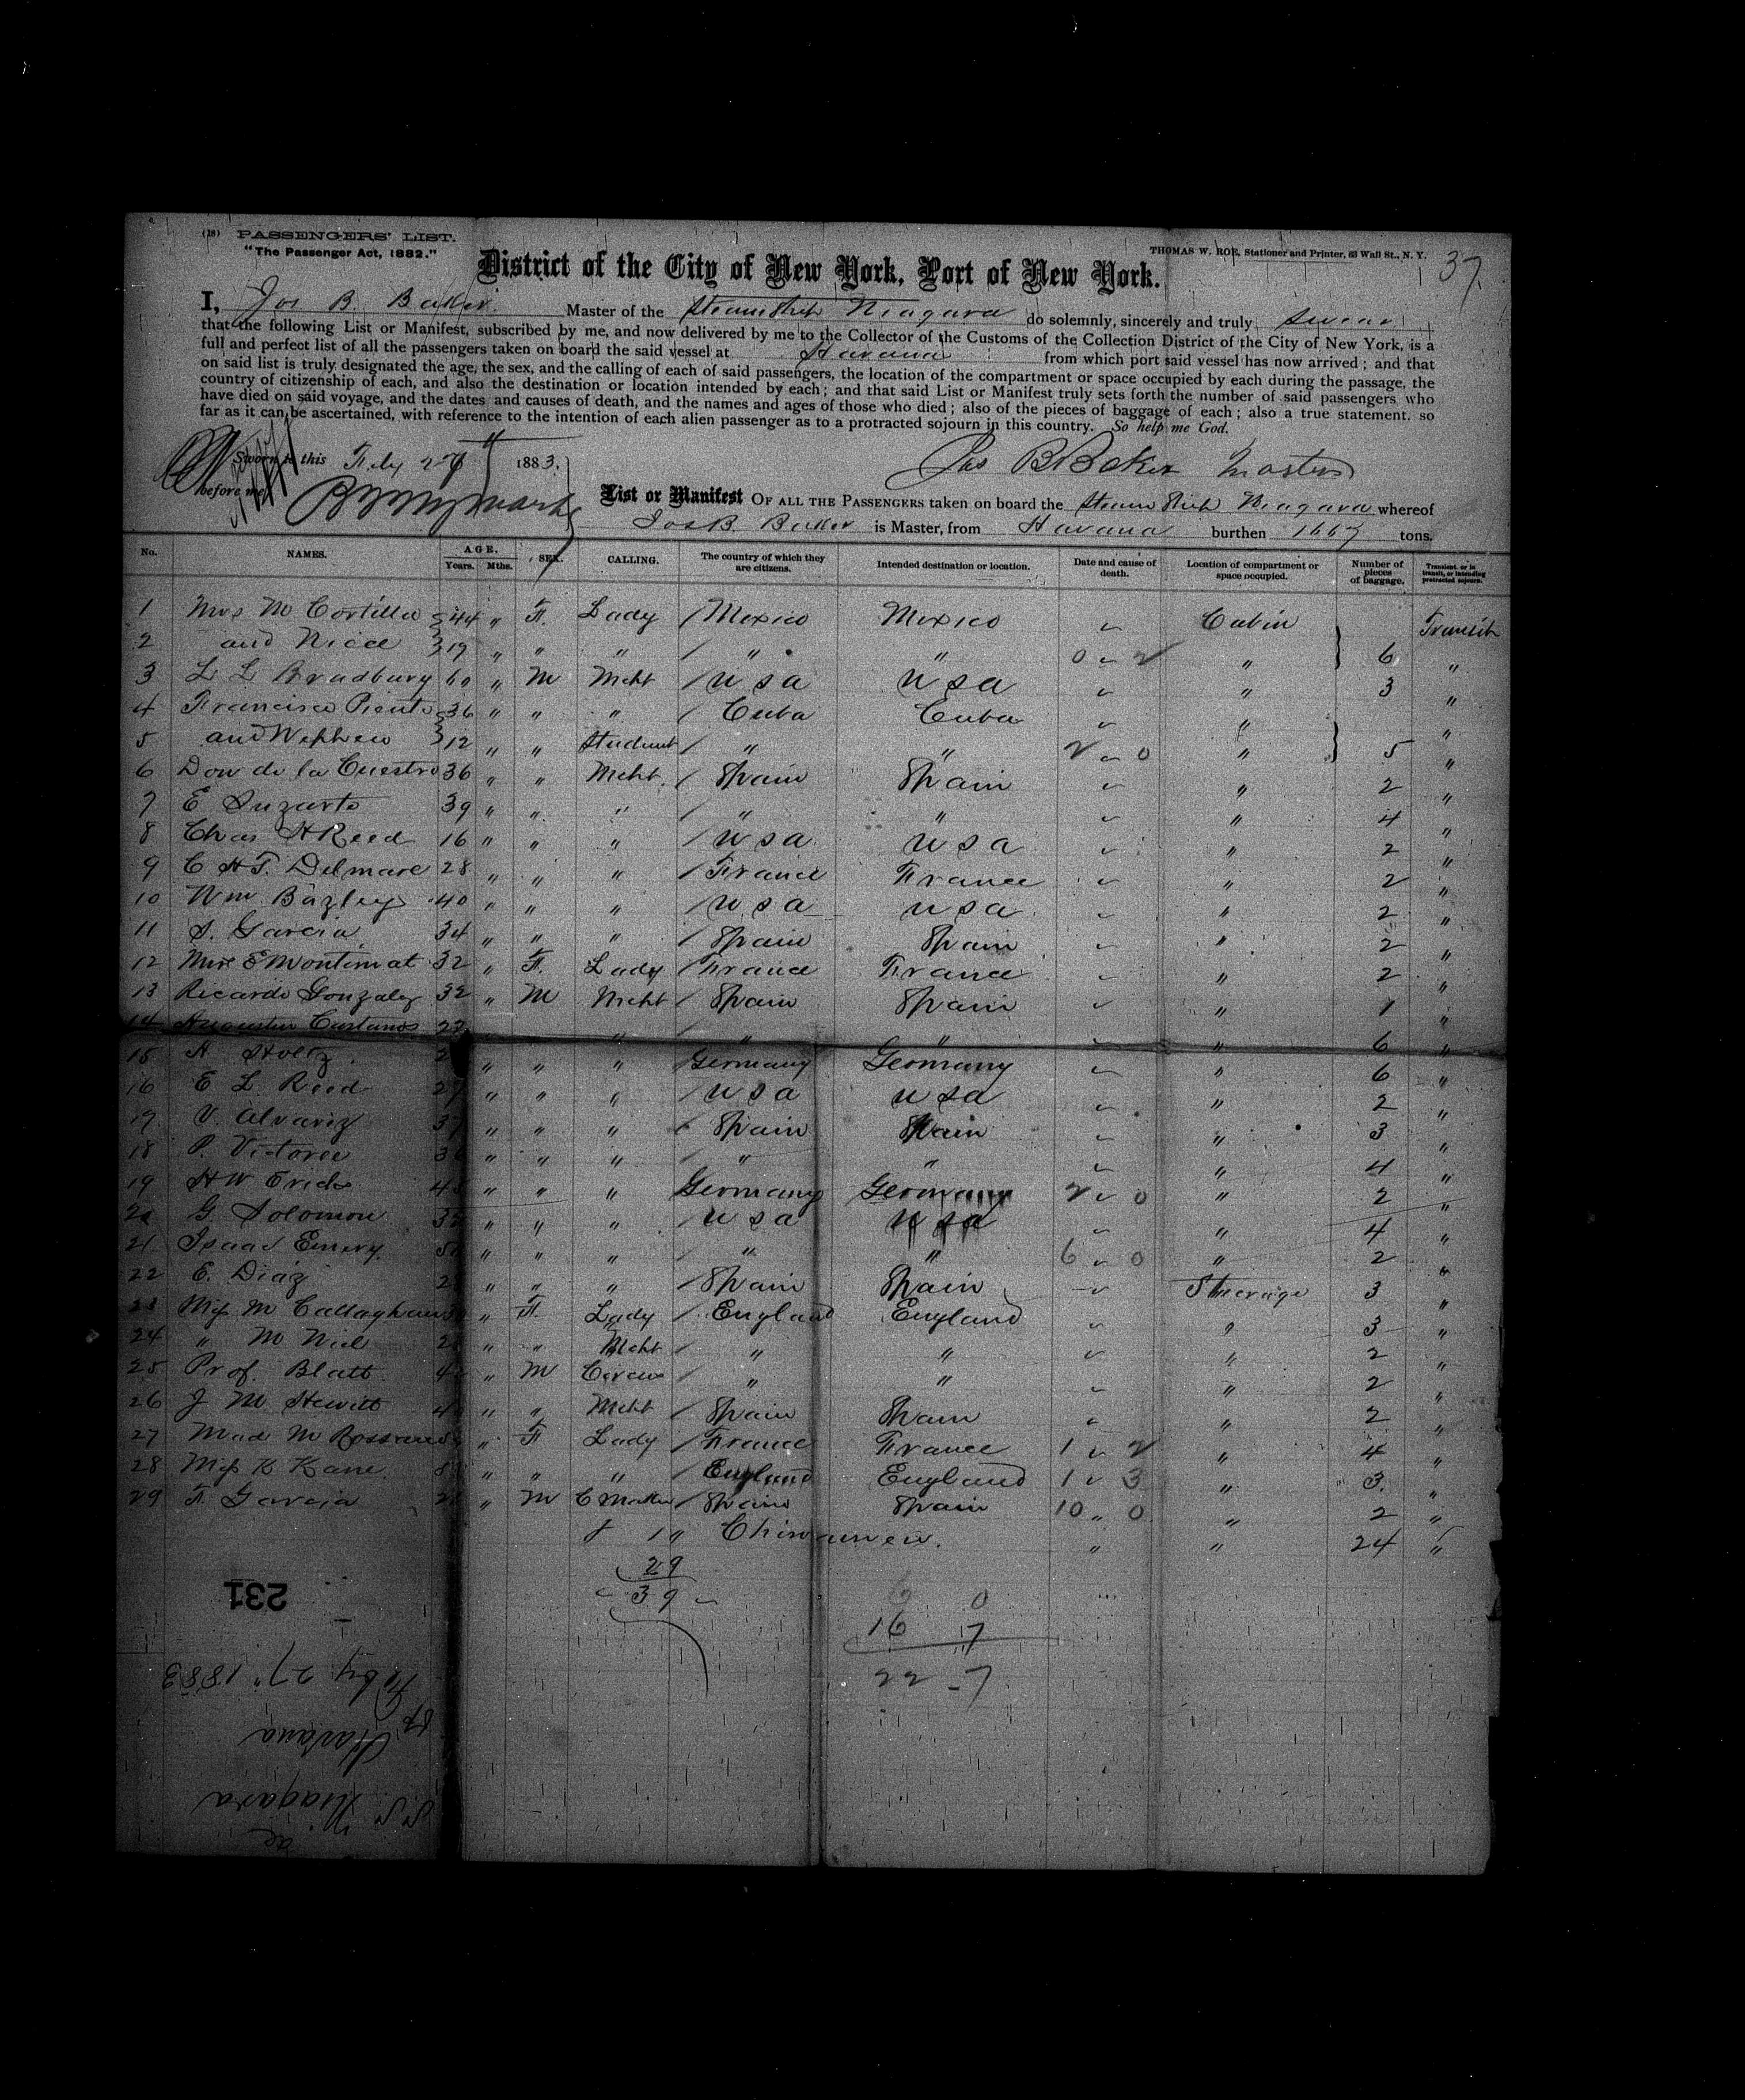 (18) PASSENGERS' LIST.
"The Passenger Act, 1882."
THOMAS W. ROE, Stationer and Printer, 63 Wall St., N. Y.
37
District of the City of New York, Port of New York.
I, Jos B. Baker Master of the Steam Ship Niagara do solemnly, sincerely and truly swear
that the following List or Manifest, subscribed by me, and now delivered by me to the Collector of the Customs of the Collection District of the City of New York, is a
full and perfect list of all the passengers taken on board the said vessel at Havana from which port said vessel has now arrived; and that
on said list is truly designated the age, the sex, and the calling of each of said passengers, the location of the compartment or space occupied by each during the passage, the
country of citizenship of each, and also the destination or location intended by each; and that said List or Manifest truly sets forth the number of said passengers who
have died on said voyage, and the dates and causes of death, and the names and ages of those who died; also of the pieces of baggage of each; also a true statement, so
far as it can be ascertained, with reference to the intention of each alien passenger as to a protracted sojourn in this country. So help me God.
Sworn to this Feby 27 1883,
Jos B Baker Master
before me
List or Manifest OF ALL THE PASSENGERS taken on board the Steam Ship Niagara whereof
Jos B Baker is Master, from Havana burthen 1667 tons.
No. NAMES. AGE. Years. Mths. SEX. CALLING. The country of which they are citizens. Intended destination or location. Date and cause of death. Location of compartment or space occupied. Number of pieces of baggage. Transient, or in transit, or intending protracted sojourn.
1 Mrs M Cortilla 44 " F. Lady Mexico Mexico Cabin Transit
2 and Niece 19 " " " " " 0 2 " 6 "
3 L L Bradbury 60 " M Mcht U S A U S A " 3 "
4 Francisco 36 " " " Cuba Cuba " "
5 and Nephew 12 " " Student " " 2 0 " 5 "
6 Don de la Cuestro 36 " " Mcht. Spain Spain " 2 "
7 E Suzarte 39 " " " " " " 4 "
8 Chas H Reed 16 " " " U S A U S A " 2 "
9 C H T. Delmare 28 " " " France France " 2 "
10 Wm Bazley 40 " " " U S A U S A " 2 "
11 S. Garcia 34 " " " Spain Spain " 2 "
12 Mrs E Montimat 32 " F. Lady France France " 2 "
13 Ricardo Gonzalez 32 " M Mcht Spain Spain " 1 "
14 Augustin Castanos " " " " 6 "
15 H Holtz " " " Germany Germany " 6 "
16 E L Reed 27 " " " U S A U S A " 2 "
17 V. Alvariz 37 " " " Spain Spain " 3 "
18 P. Victoree " " " " " " 4 "
19 H W " " " Germany Germany 2 0 " 2 "
20 G. Solomon " " " U S A U S A " 4 "
21 Isaac Emery " " " " " 6 0 " 2 "
22 E. Diaz " " " Spain Spain Steerage 3 "
23 Miss M Callaghan " F. Lady England England " 3 "
24 " M Niel " " Mcht " " " 2 "
25 Prof. Blatt " M Circus " " " 2 "
26 J M Hewitt " " Mcht Spain Spain " 2 "
27 Mad M " F Lady France France 1 2 " 4 "
28 Miss K Kane " " " England England 1 3 " 3 "
29 F. Garcia " M Spain Spain 10 0 " 2 "
10 Chinamen. " " 24 "
29
39
6 0
16 7
22 - 7
231
Feby 27" 1883
Havana
S.S. Niagara